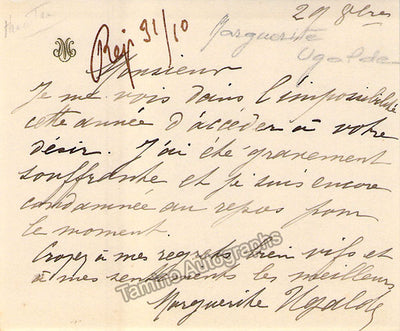 29 8bre
Rép 31/10
Marguerite
Ugalde
Monsieur
Je me vois dans l'impossibilité
cette année d'accéder à votre
désir. J'ai été gravement
souffrante et je suis encore
condamnée au repos pour
le moment.
Croyez à mes regrets bien vifs et
à mes sentiments les meilleurs
Marguerite Ugalde
Tamino Autographs